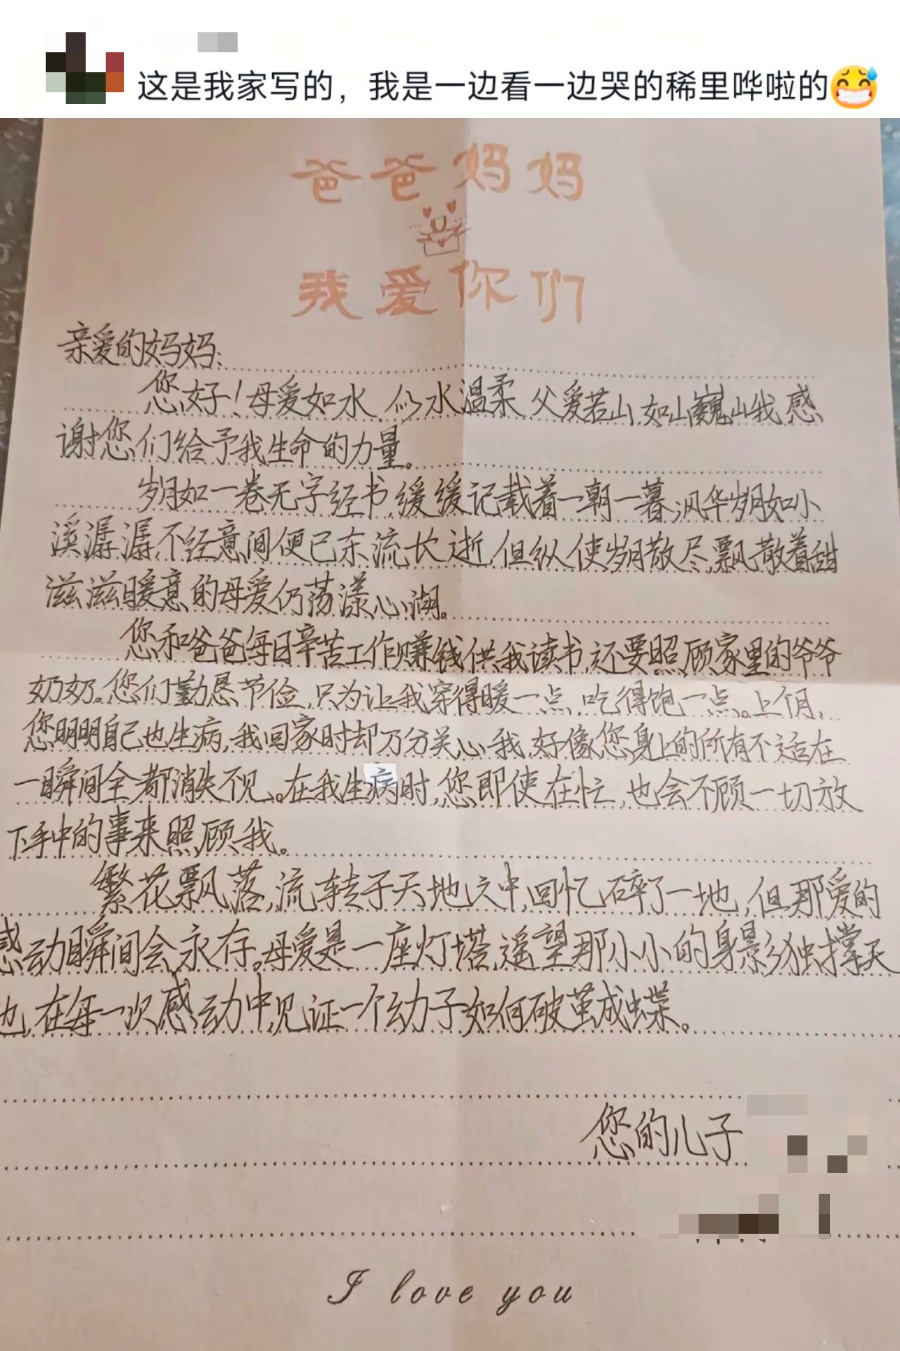 这是我家写的，我是一边看一边哭的稀里哗啦的😅
爸爸妈妈
我爱你们
亲爱的妈妈:
您好！母爱如水，似水温柔，父爱若山，如山巍山我感
谢您们给予我生命的力量。
岁月如一卷无字经书，缓缓记载着一朝一暮，风华岁月如小
溪潺潺，不经意间便已东流长逝，但纵使岁月散尽，飘散着甜
滋滋暖意的母爱仍荡漾心湖。
您和爸爸每日辛苦工作赚钱供我读书，还要照顾家里的爷爷
奶奶。您们勤恳节俭，只为让我穿得暖一点，吃得饱一点。上个月，
您明明自己也生病，我回家时却万分关心我，好像您身上的所有不适在
一瞬间全都消失不见。在我生病时，您即使在忙，也会不顾一切放
下手中的事来照顾我。
繁花飘落，流转于天地之中，回忆碎了一地，但那爱的
感动瞬间会永存。母爱是一座灯塔，遥望那小小的身影独撑天
地，在每一次感动中，见证一个幼子如何破茧成蝶。
您的儿子
I love you